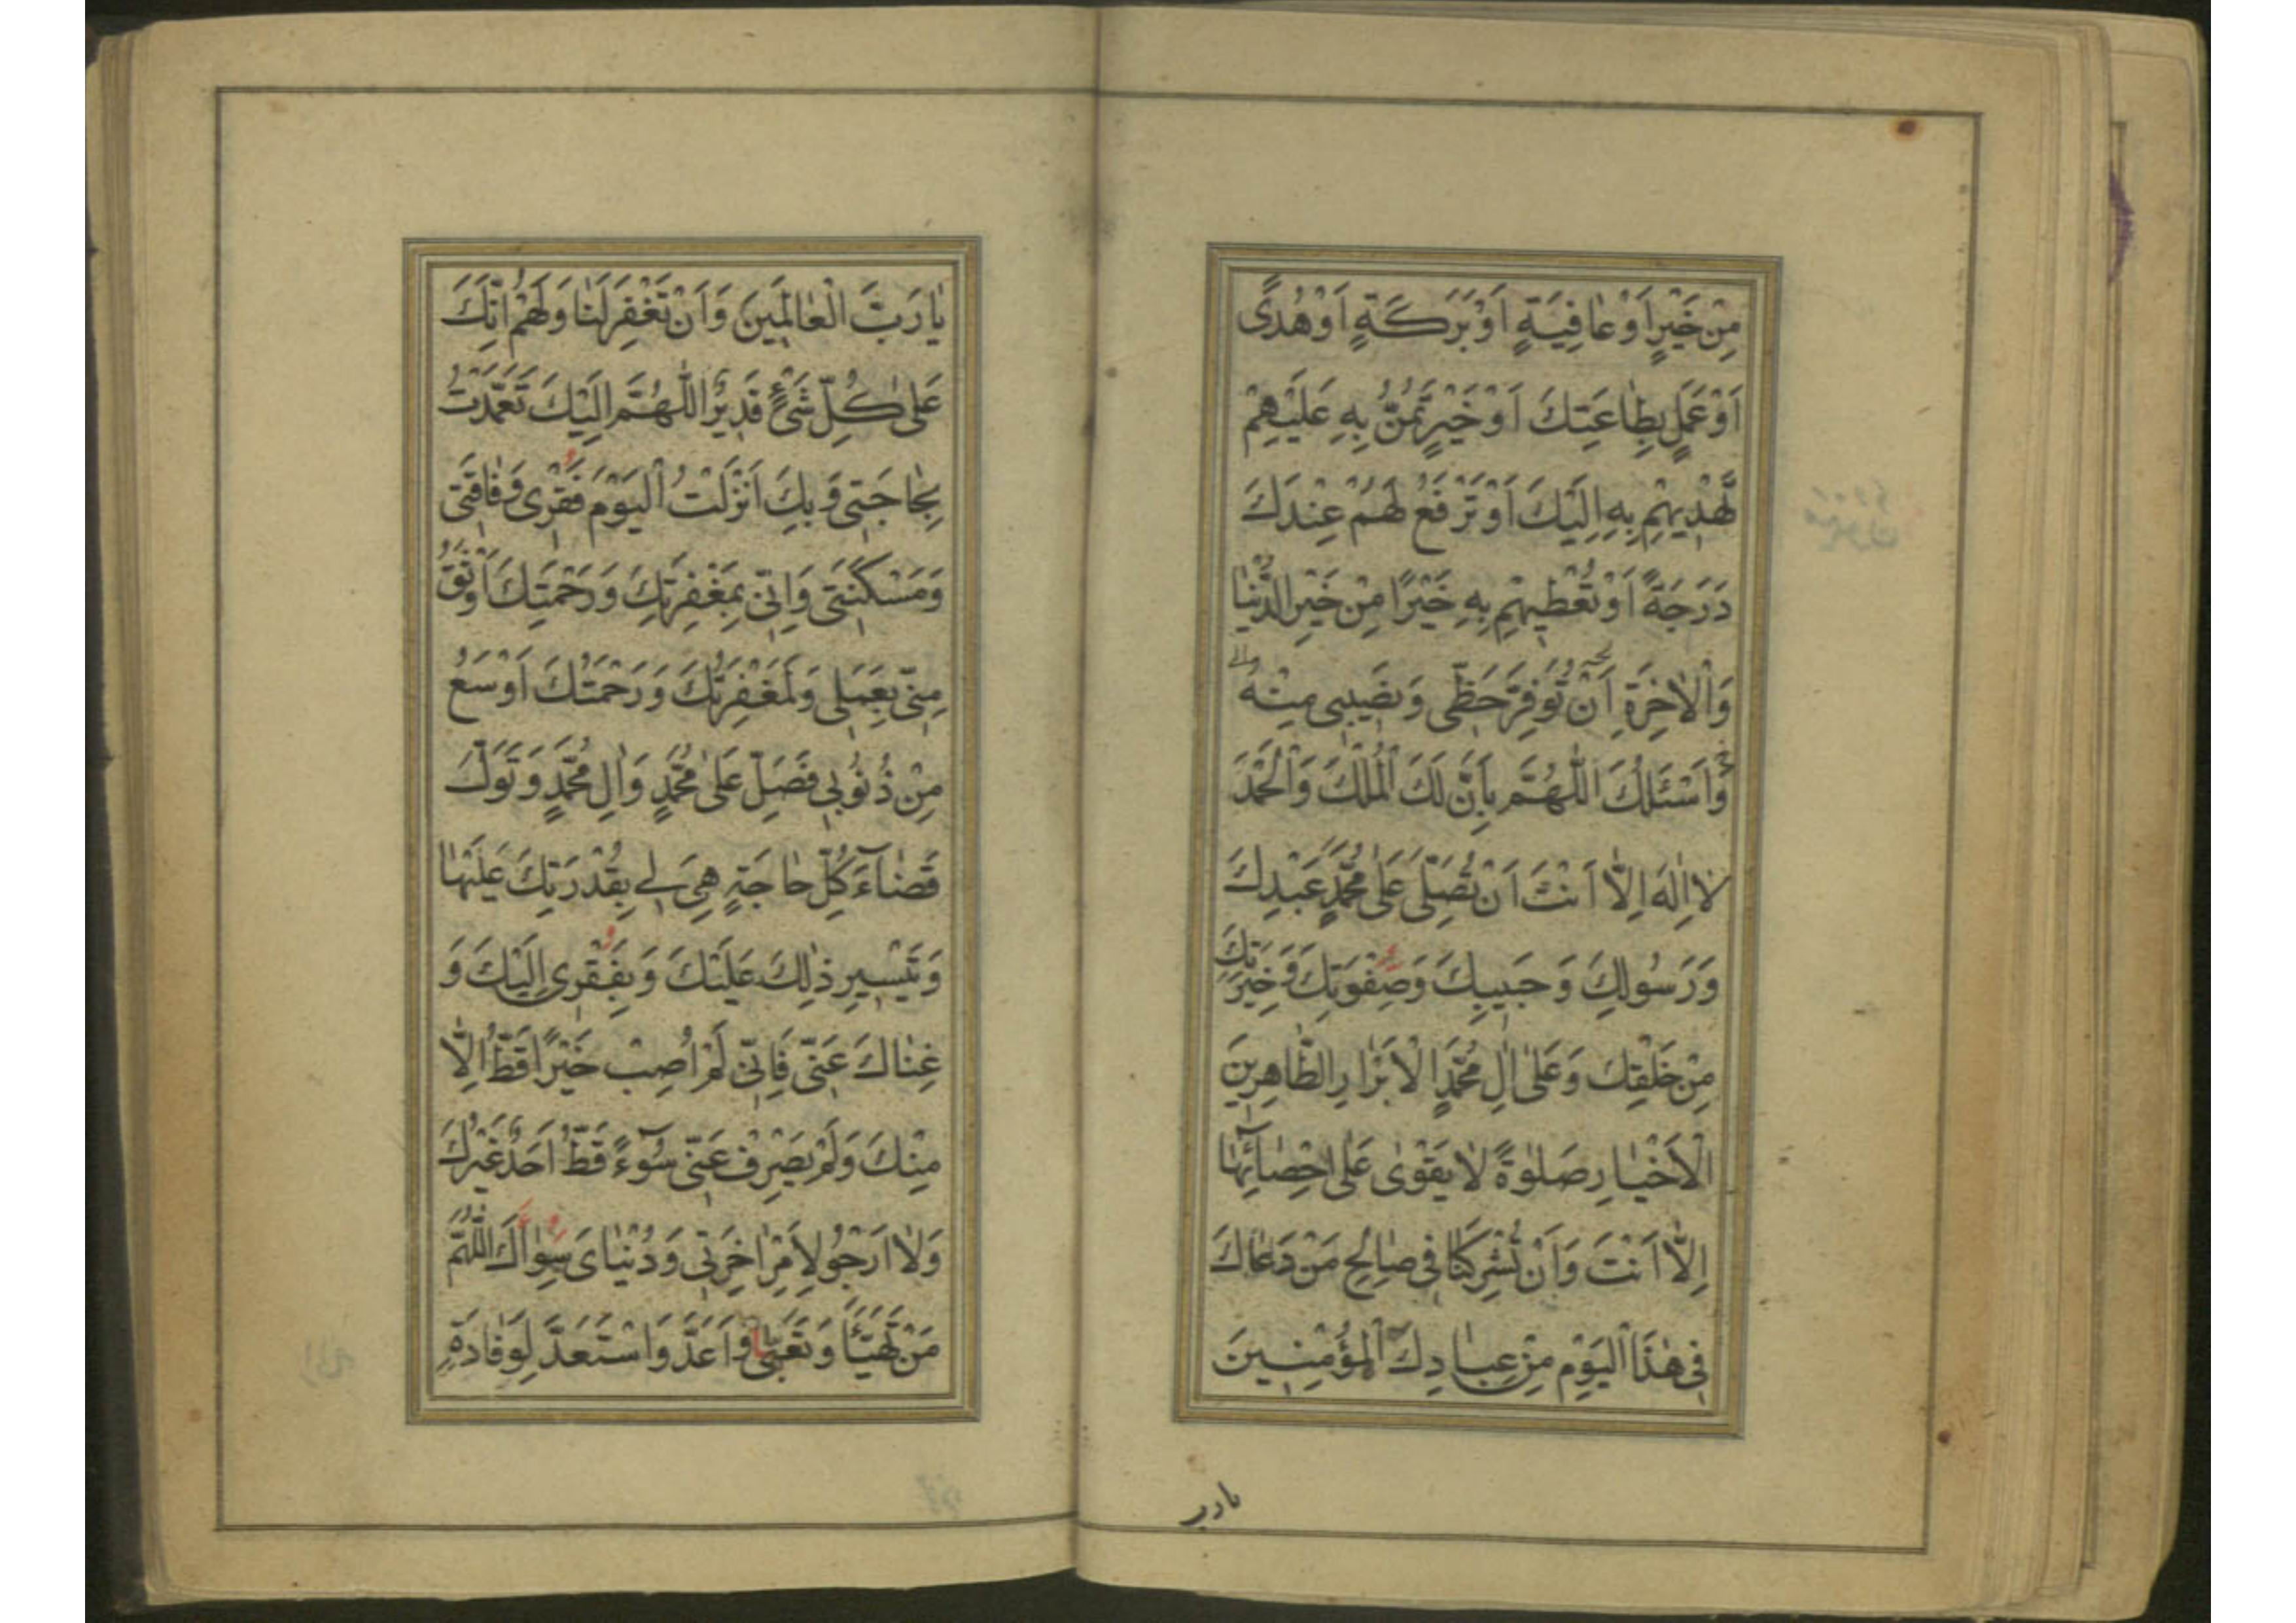 مِنْ خَيْرٍ اَوْ عٰافِيَةٍ اَوْ بَرَكَةٍ اَوْ هُدًى
اَوْ عَمَلٍ بِطٰاعَتِكَ اَوْ خَيْرٍ تَمُنُّ بِهِ عَلَيْهِمْ
تَهْدِيهِمْ بِهِ اِلَيْكَ اَوْ تَرْفَعُ لَهُمْ عِنْدَكَ
دَرَجَةً اَوْ تُعْطِيهِمْ بِهِ خَيْرًا مِنْ خَيْرِ الدُّنْيٰا
وَالْاٰخِرَةِ اَنْ تُوَفِّرَ حَظّٖى وَنَصٖيبٖى مِنْهُ
وَاَسْئَلُكَ اللّٰهُمَّ بِاَنَّ لَكَ الْمُلْكَ وَالْحَمْدَ
لٰا اِلٰهَ اِلّٰا اَنْتَ اَنْ تُصَلِّىَ عَلىٰ مُحَمَّدٍ عَبْدِكَ
وَرَسُولِكَ وَحَبٖيبِكَ وَصِفْوَتِكَ وَخِيَرَتِكَ
مِنْ خَلْقِكَ وَعَلىٰ اٰلِ مُحَمَّدٍ الْاَبْرٰارِ الطّٰاهِرٖينَ
الْاَخْيٰارِ صَلوٰةً لٰا يَقْوىٰ عَلىٰ اِحْصٰائِهٰا
اِلّٰا اَنْتَ وَاَنْ تُشْرِكَنٰا فٖى صٰالِحِ مَنْ دَعٰاكَ
فٖى هٰذَا الْيَوْمِ مِنْ عِبٰادِكَ الْمُؤْمِنٖينَ
يارب
يٰا رَبَّ الْعٰالَمٖينَ وَاَنْ تَغْفِرَ لَنٰا وَلَهُمْ اِنَّكَ
عَلىٰ كُلِّ شَىْءٍ قَدٖيرٌ اَللّٰهُمَّ اِلَيْكَ تَعَمَّدْتُ
بِحٰاجَتٖى وَبِكَ اَنْزَلْتُ الْيَوْمَ فَقْرٖى وَفٰاقَتٖى
وَمَسْكَنَتٖى وَاِنّٖى بِمَغْفِرَتِكَ وَرَحْمَتِكَ اَوْثَقُ
مِنّٖى بِعَمَلٖى وَلَمَغْفِرَتُكَ وَرَحْمَتُكَ اَوْسَعُ
مِنْ ذُنُوبٖى فَصَلِّ عَلىٰ مُحَمَّدٍ وَاٰلِ مُحَمَّدٍ وَتَوَلَّ
قَضٰاءَ كُلِّ حٰاجَةٍ هِىَ لٖى بِقُدْرَتِكَ عَلَيْهٰا
وَتَيْسٖيرِ ذٰلِكَ عَلَيْكَ وَبِفَقْرٖى اِلَيْكَ وَ
غِنٰاكَ عَنّٖى فَاِنّٖى لَمْ اُصِبْ خَيْرًا قَطُّ اِلّٰا
مِنْكَ وَلَمْ يَصْرِفْ عَنّٖى سُوٓءً قَطُّ اَحَدٌ غَيْرُكَ
وَلٰا اَرْجُو لِاَمْرِ اٰخِرَتٖى وَدُنْيٰاىَ سِوٰاكَ اَللّٰهُمَّ
مَنْ تَهَيَّأَ وَتَعَبّٰى وَاَعَدَّ وَاسْتَعَدَّ لِوَفٰادَةٍ